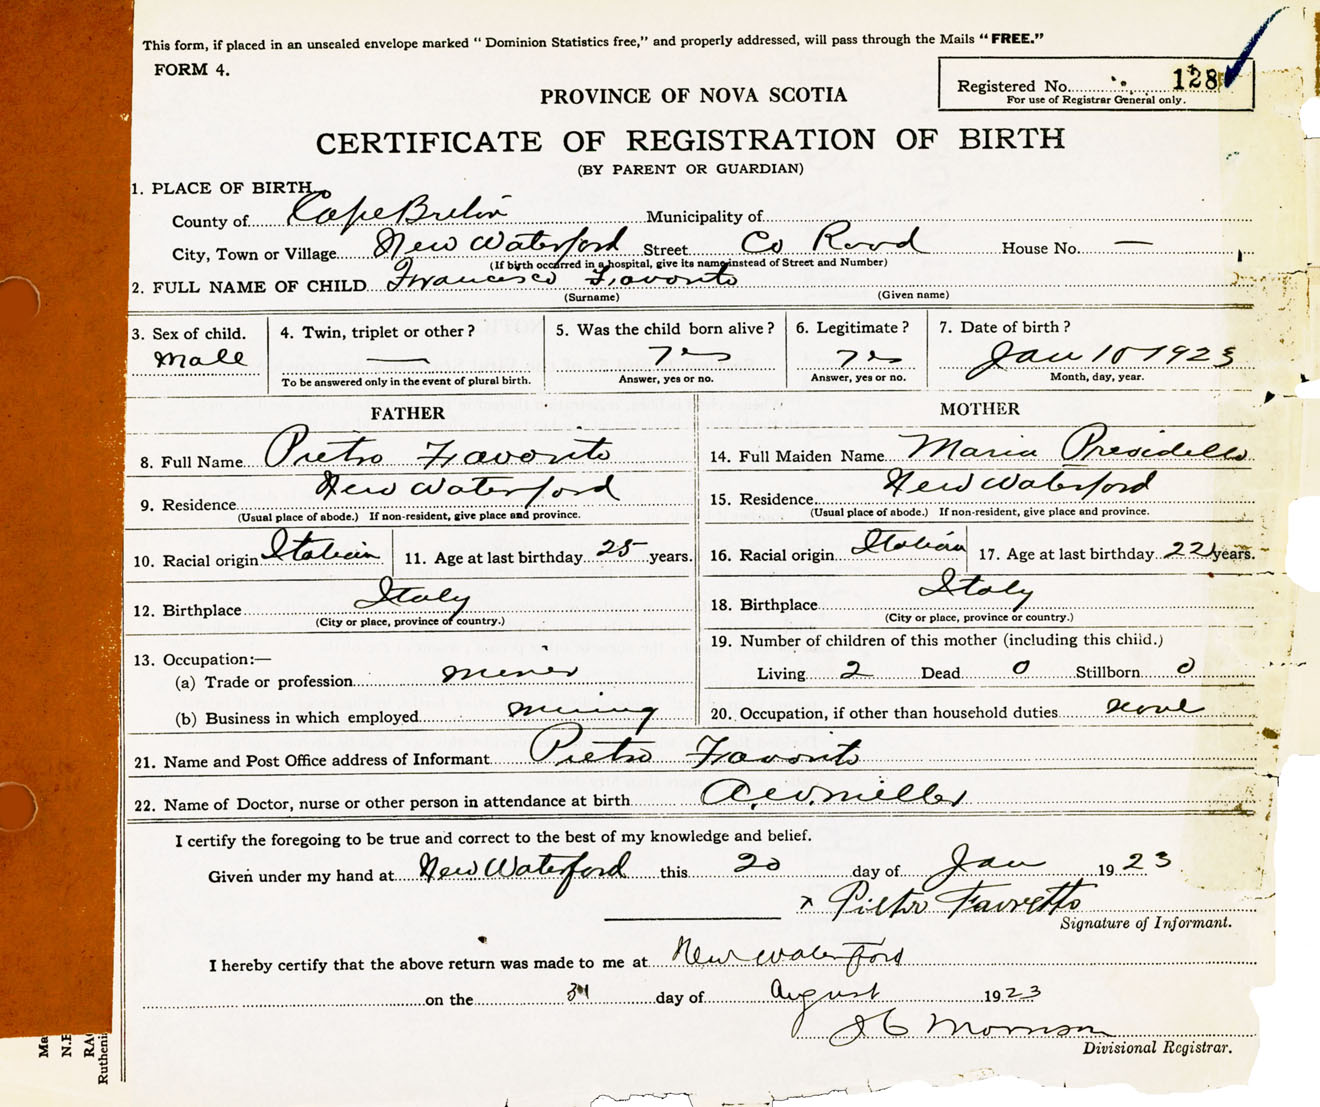 This form, if placed in an unsealed envelope marked "Dominion Statistics free," and properly addressed, will pass through the Mails "FREE."
FORM 4.
Registered No. 128
For use of Registrar General only.
PROVINCE OF NOVA SCOTIA
CERTIFICATE OF REGISTRATION OF BIRTH
(BY PARENT OR GUARDIAN)
1. PLACE OF BIRTH
County of Cape Breton Municipality of
City, Town or Village New Waterford Street Co Road House No. —
(If birth occurred in a hospital, give its name instead of Street and Number)
2. FULL NAME OF CHILD Francesco Favorito
(Surname) (Given name)
3. Sex of child. 4. Twin, triplet or other? 5. Was the child born alive? 6. Legitimate? 7. Date of birth?
Male — Yes Yes Jan 10 1923
To be answered only in the event of plural birth. Answer, yes or no. Answer, yes or no. Month, day, year.
FATHER MOTHER
8. Full Name Pietro Favorito 14. Full Maiden Name Maria Presidello
9. Residence New Waterford 15. Residence New Waterford
(Usual place of abode.) If non-resident, give place and province. (Usual place of abode.) If non-resident, give place and province.
10. Racial origin Italian 11. Age at last birthday 25 years. 16. Racial origin Italian 17. Age at last birthday 22 years.
12. Birthplace Italy 18. Birthplace Italy
(City or place, province or country.) (City or place, province or country.)
13. Occupation:— 19. Number of children of this mother (including this child.)
(a) Trade or profession miner Living 2 Dead 0 Stillborn 0
(b) Business in which employed mining 20. Occupation, if other than household duties none
21. Name and Post Office address of Informant Pietro Favorito
22. Name of Doctor, nurse or other person in attendance at birth A.W. Miller
I certify the foregoing to be true and correct to the best of my knowledge and belief.
Given under my hand at New Waterford this 20 day of Jan 1923
x Pietro Favretto
Signature of Informant.
I hereby certify that the above return was made to me at New Waterford
on the 31 day of August 1923
J C Morrison
Divisional Registrar.
Ma
N.B
RAC
Rutheni